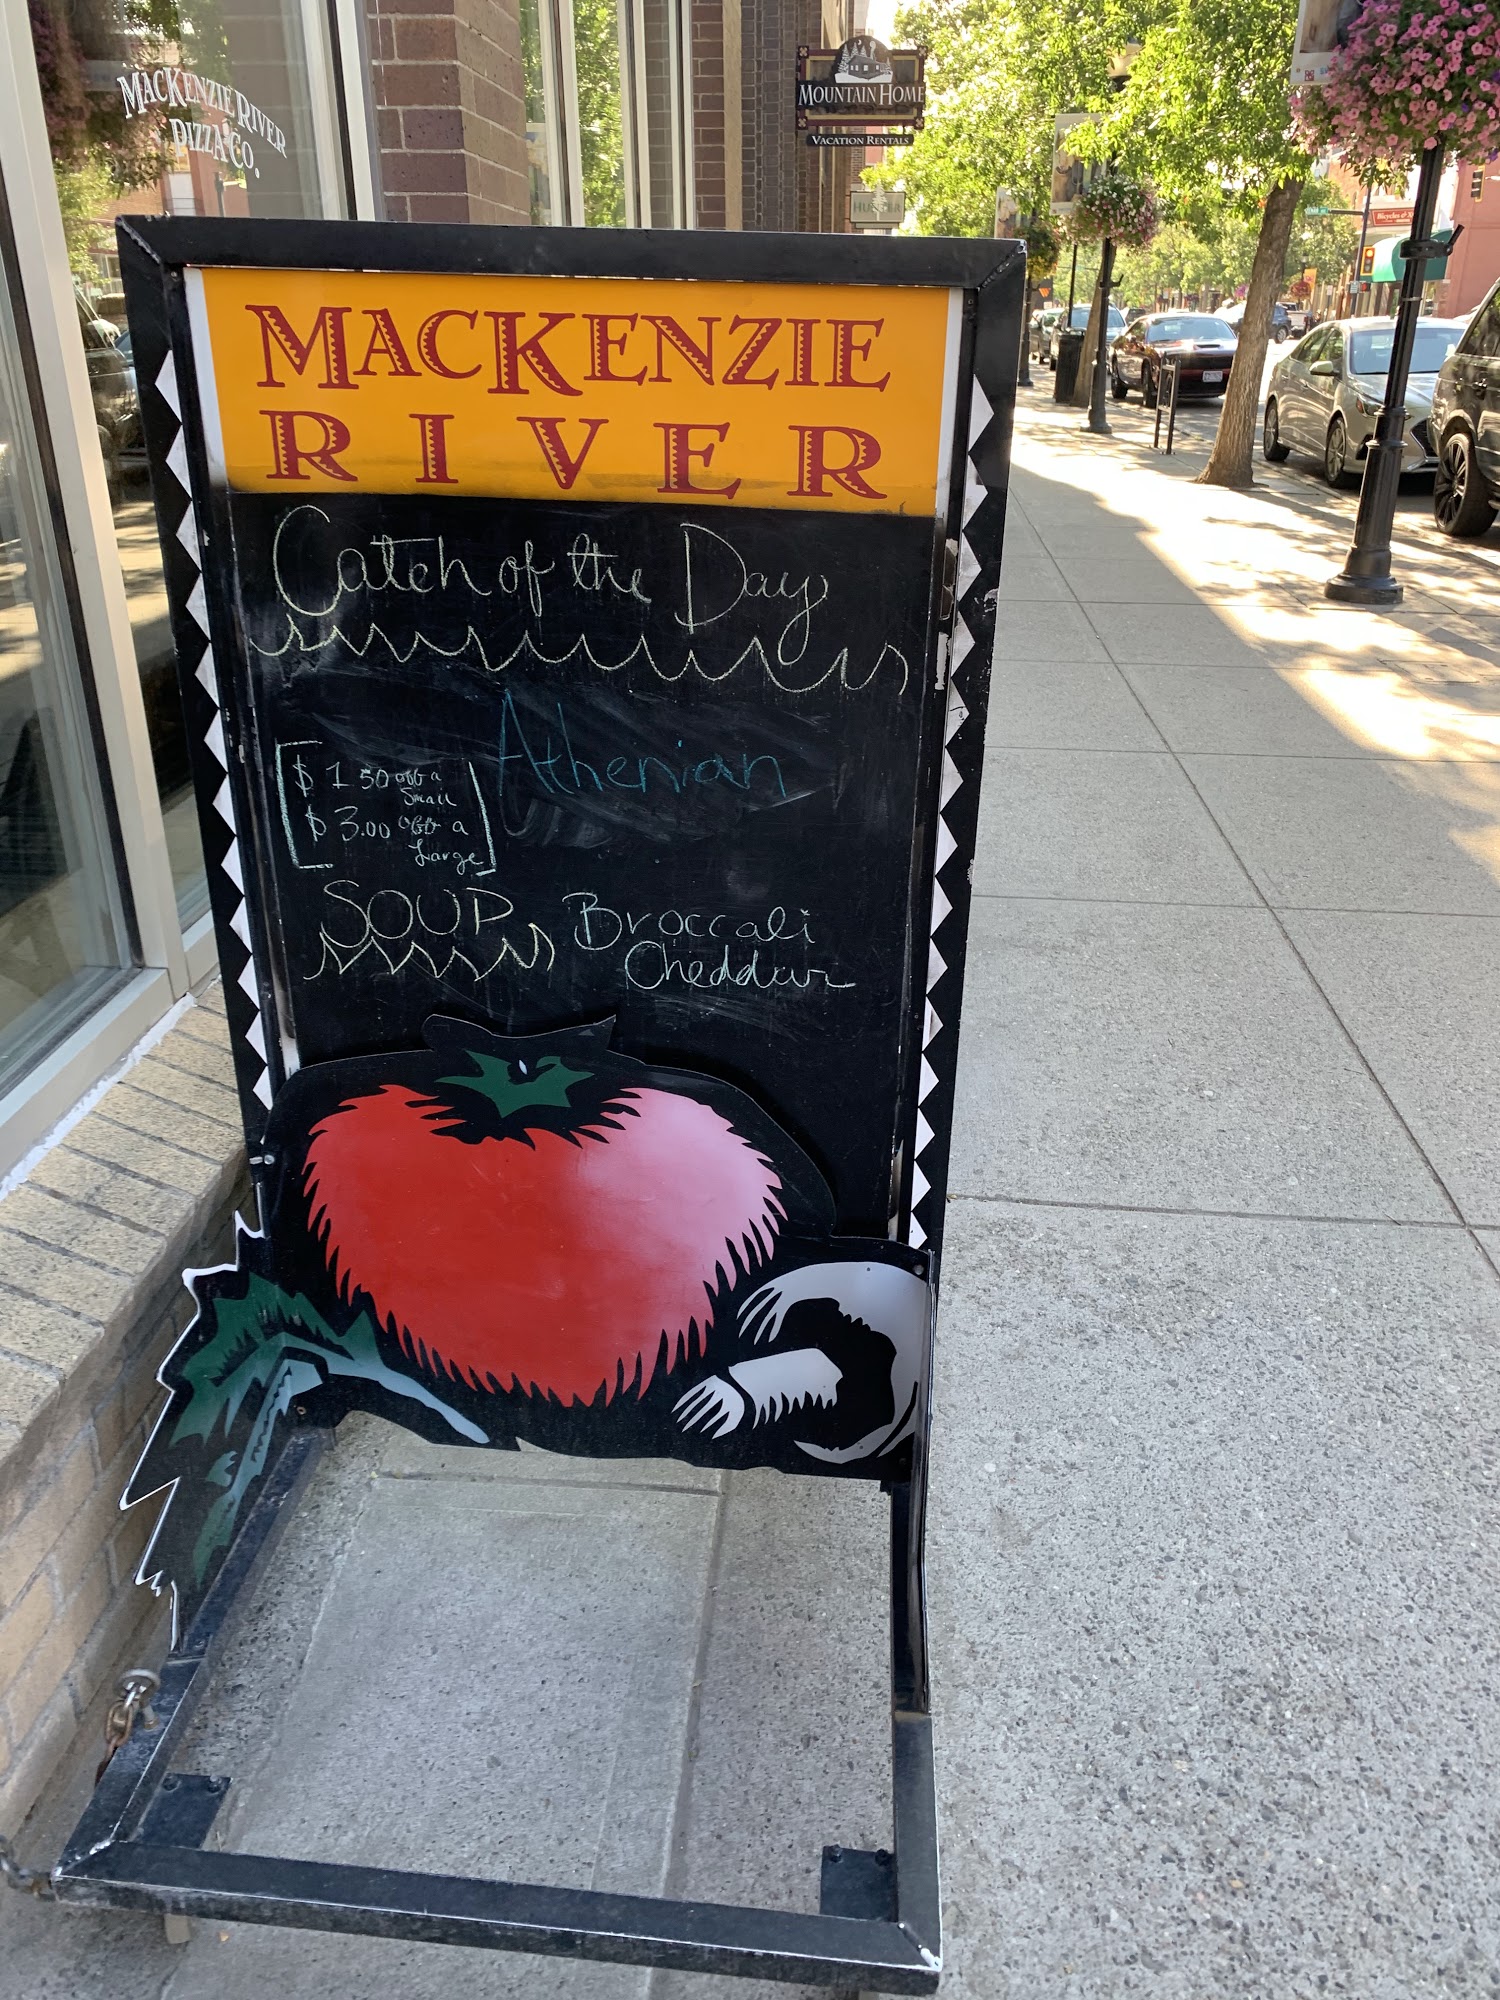 MACKENZIE RIVER
PIZZA CO.
MOUNTAIN HOME
VACATION RENTALS
MACKENZIE
RIVER
Catch of the Day
Athenian
$1.50 off a
Small
$3.00 off a
Large
SOUP
Broccali
Cheddar